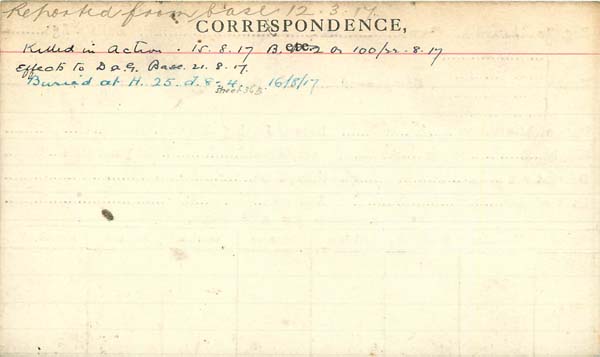 Reported from base 12.3.17.
CORRESPONDENCE,
etc.
Killed in Action . 15.8.17 B, 2 or 100/22.8.17
Effects to D a G. Base 21.8.17.
Buried at H. 25. d. 8.4 16/8/17
Sheet 36B